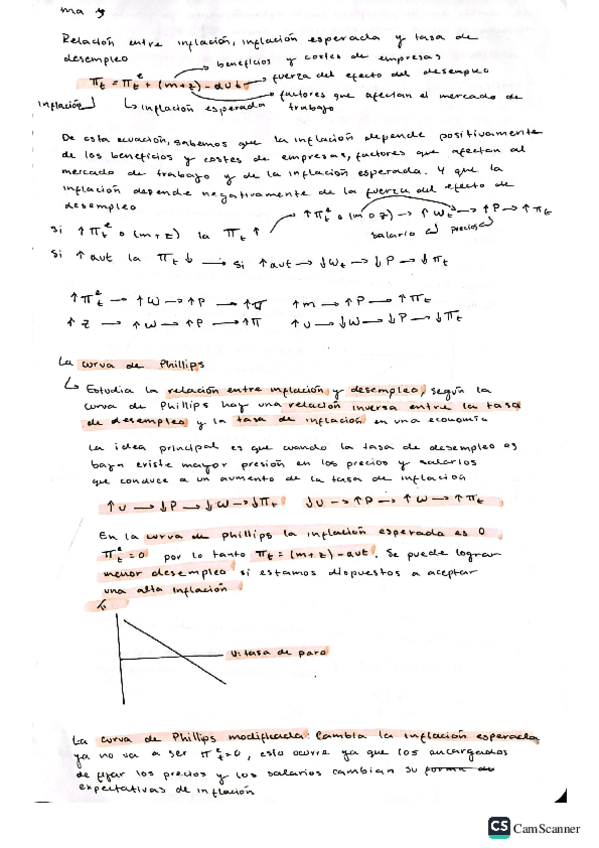 ma 9
Relación entre inflación, inflación esperada y tasa de
desempleo
beneficios y costes de empresas
πt = πt^e + (m+z) - αut
fuerza del efecto del desempleo
factores que afectan el mercado de
trabajo
inflación
inflación esperada
De esta ecuación, sabemos que la inflación depende positivamente
de los beneficios y costes de empresas, factores que afectan al
mercado de trabajo y de la inflación esperada. Y que la
inflación depende negativamente de la fuerza del efecto de
desempleo
Si ↑πt^e o (m+z) la πt ↑ → ↑πt^e o (m o z) → ↑Wt → ↑P → ↑πt
salario precios
Si ↑αut la πt ↓ → Si ↑αut → ↓Wt → ↓P → ↓πt
↑πt^e → ↑W → ↑P → ↑π ↑m → ↑P → ↑πt
↑z → ↑W → ↑P → ↑π ↑u → ↓W → ↓P → ↓πt
La curva de Phillips
↳ Estudia la relación entre inflación y desempleo, según la
curva de Phillips hay una relación inversa entre la tasa
de desempleo y la tasa de inflación en una economía
La idea principal es que cuando la tasa de desempleo es
baja existe mayor presión en los precios y salarios
que conduce a un aumento de la tasa de inflación
↑u → ↓P → ↓W → ↓πt ↓u → ↑P → ↑W → ↑πt
En la curva de Phillips la inflación esperada es 0
πt^e = 0 por lo tanto πt = (m+z) - αut. Se puede lograr
menor desempleo si estamos dispuestos a aceptar
una alta inflación
u: tasa de paro
La curva de Phillips modificada: Cambia la inflación esperada,
ya no va a ser πt^e = 0, esto ocurre ya que los encargados
de fijar los precios y los salarios cambian su forma de
expectativas de inflación
CS CamScanner